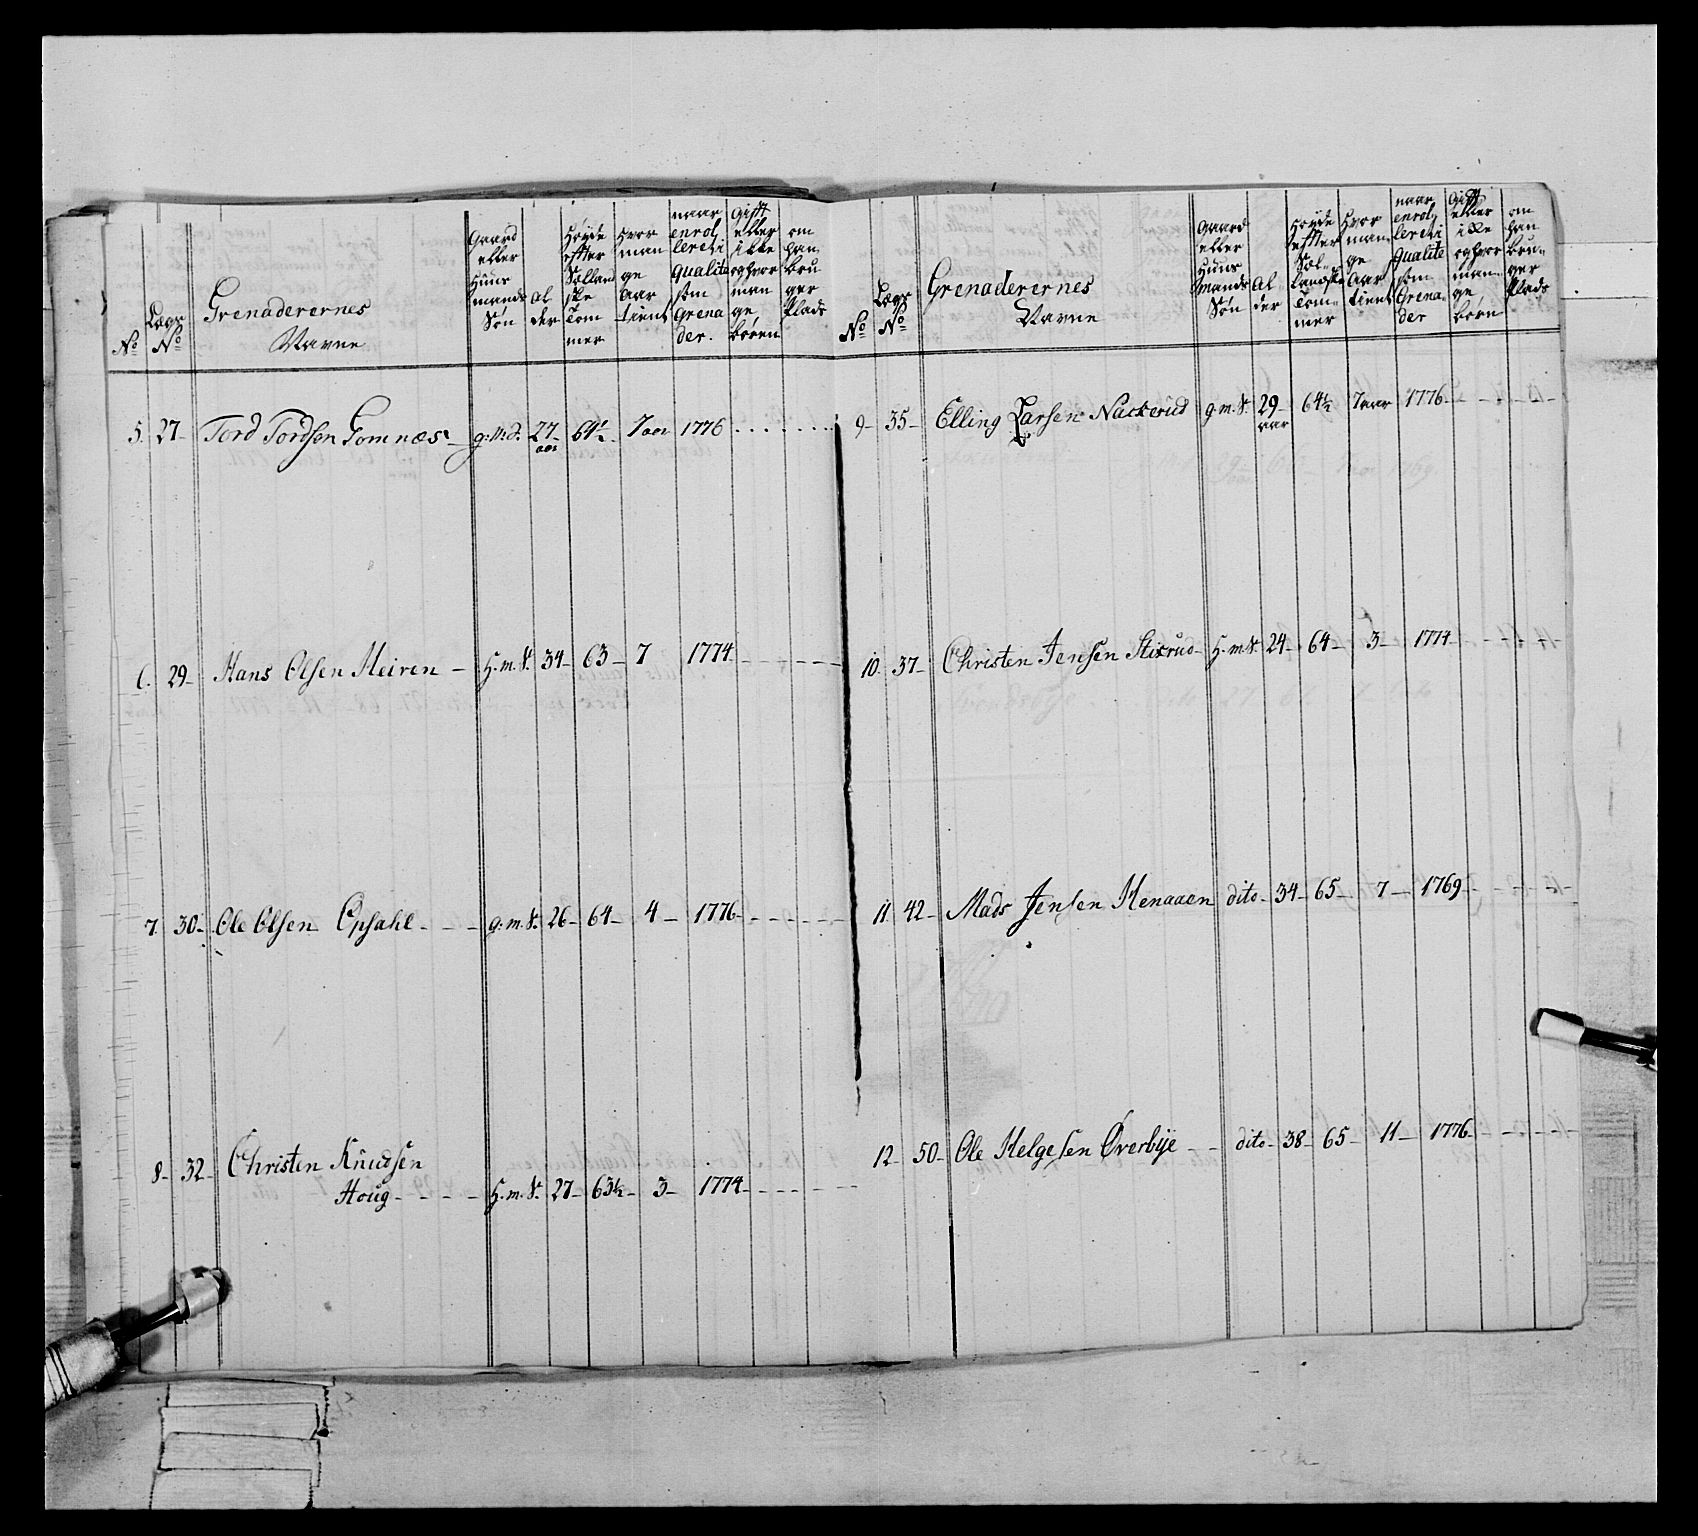 No
Lægs No
Grenaderernes Navne
Gaard eller Huus mands Søn
Al der
Høyde efter Sælland ske Tom mer
Hvor man ge Aar tient
naar enrol lert i qualite som Grena der.
Gifft eller ikke og hvor man ge börn
om han bru ger Plads
5. 27- Tord Tordsen Gomnæs- g.m.S. 27- aar 64½ 7 aar 1776
6. 29- Hans Olsen Heiren - H.m.S. 34- 63- 7 1774
7. 30- Ole Olsen Opsahl - - - g.m.S. 26- 64- 4- 1776
8- 32- Christen Knudsen
Houg - - - - H.m.S. 27- 63½- 3- 1774
No
Lægs No
Grenaderernes Navne
Gaard eller Huus mands Søn
Al der
Høyde effter Sæl- landske Tom- mer
Hvor man- ge Aar tient
naar enrol lert i qualite som Grena- der
Gifft eller ikke og hvor man- ge börn
om han bru- ger Plads
9- 35- Elling Larsen Nackerud g.m.S. 29- aar 64½ 7 aar 1776
10. 37- Christen Jensen Stixrud- H.m.S. 24- 64- 3- 1774
11. 42- Mads Jensen Henaaen dito- 34- 65- 7- 1769
12- 50- Ole Helgesen Øverbye - - dito- 38- 65- 11- 1776